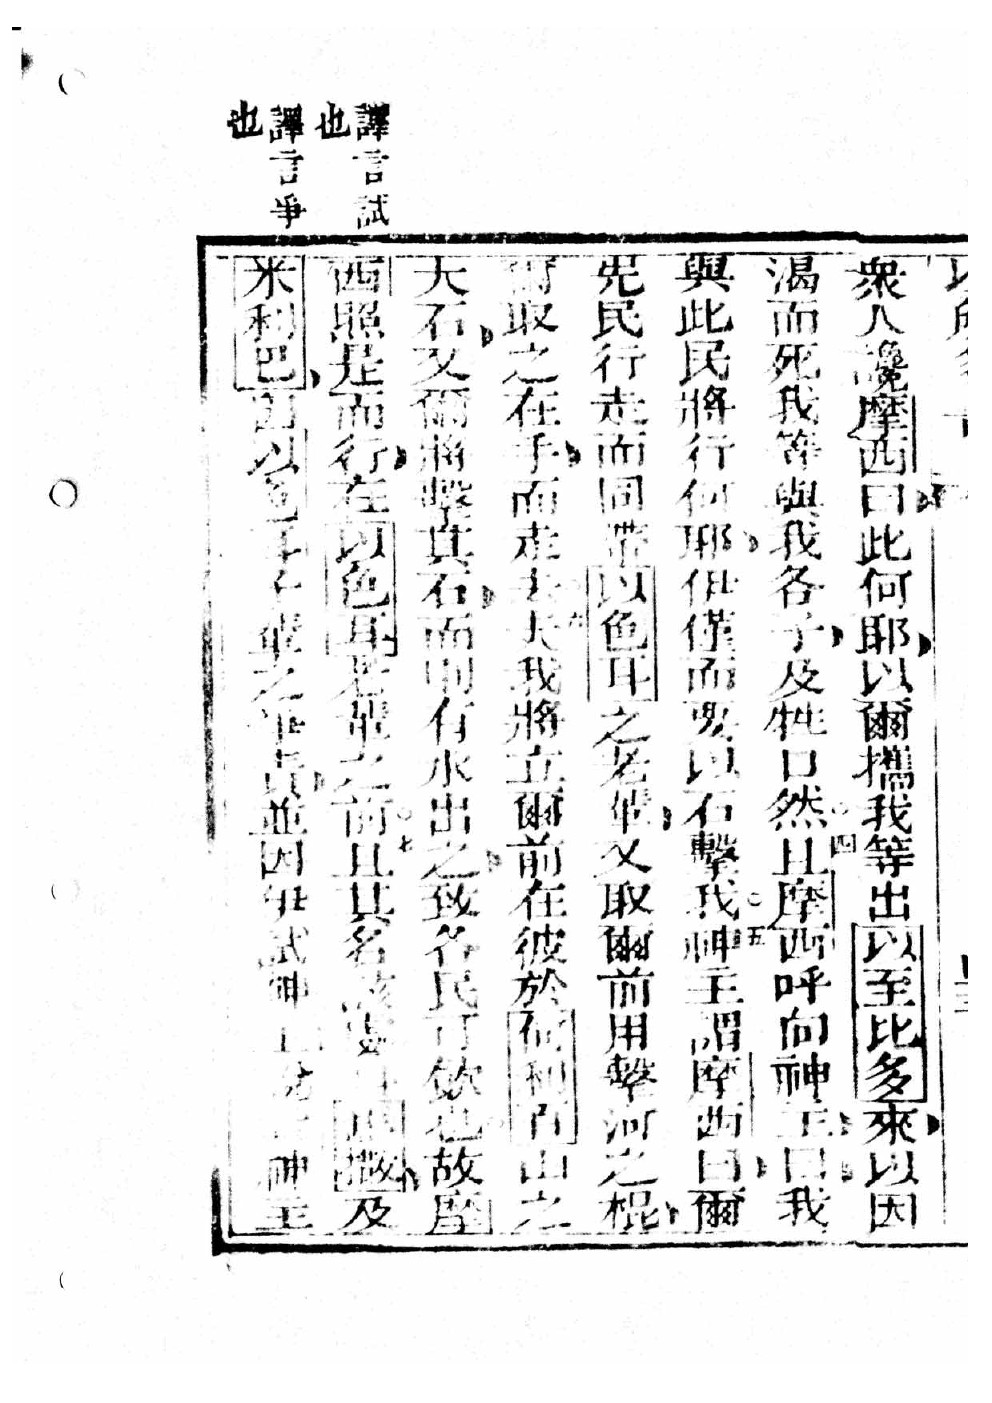 衆人讒摩西曰此何耶以爾攜我等出以至比多來以因
渴而死我等與我各子及牲口然且摩西呼向神主曰我
四
與此民將行何耶伊僅而要以石擊我神主謂摩西曰爾
五
先民行走而同帶以色耳之老輩又取爾前用擊河之棍
爾取之在手而走去夫我將立爾前在彼於何利百山之
六
大石又爾將擊其石而即有水出之致各民可飲也故摩
西照是而行在以色耳老輩之前且其名該處 及
七
米利巴因以色耳 輩之 責並因伊試神 神主
譯言試
也
譯言爭
也